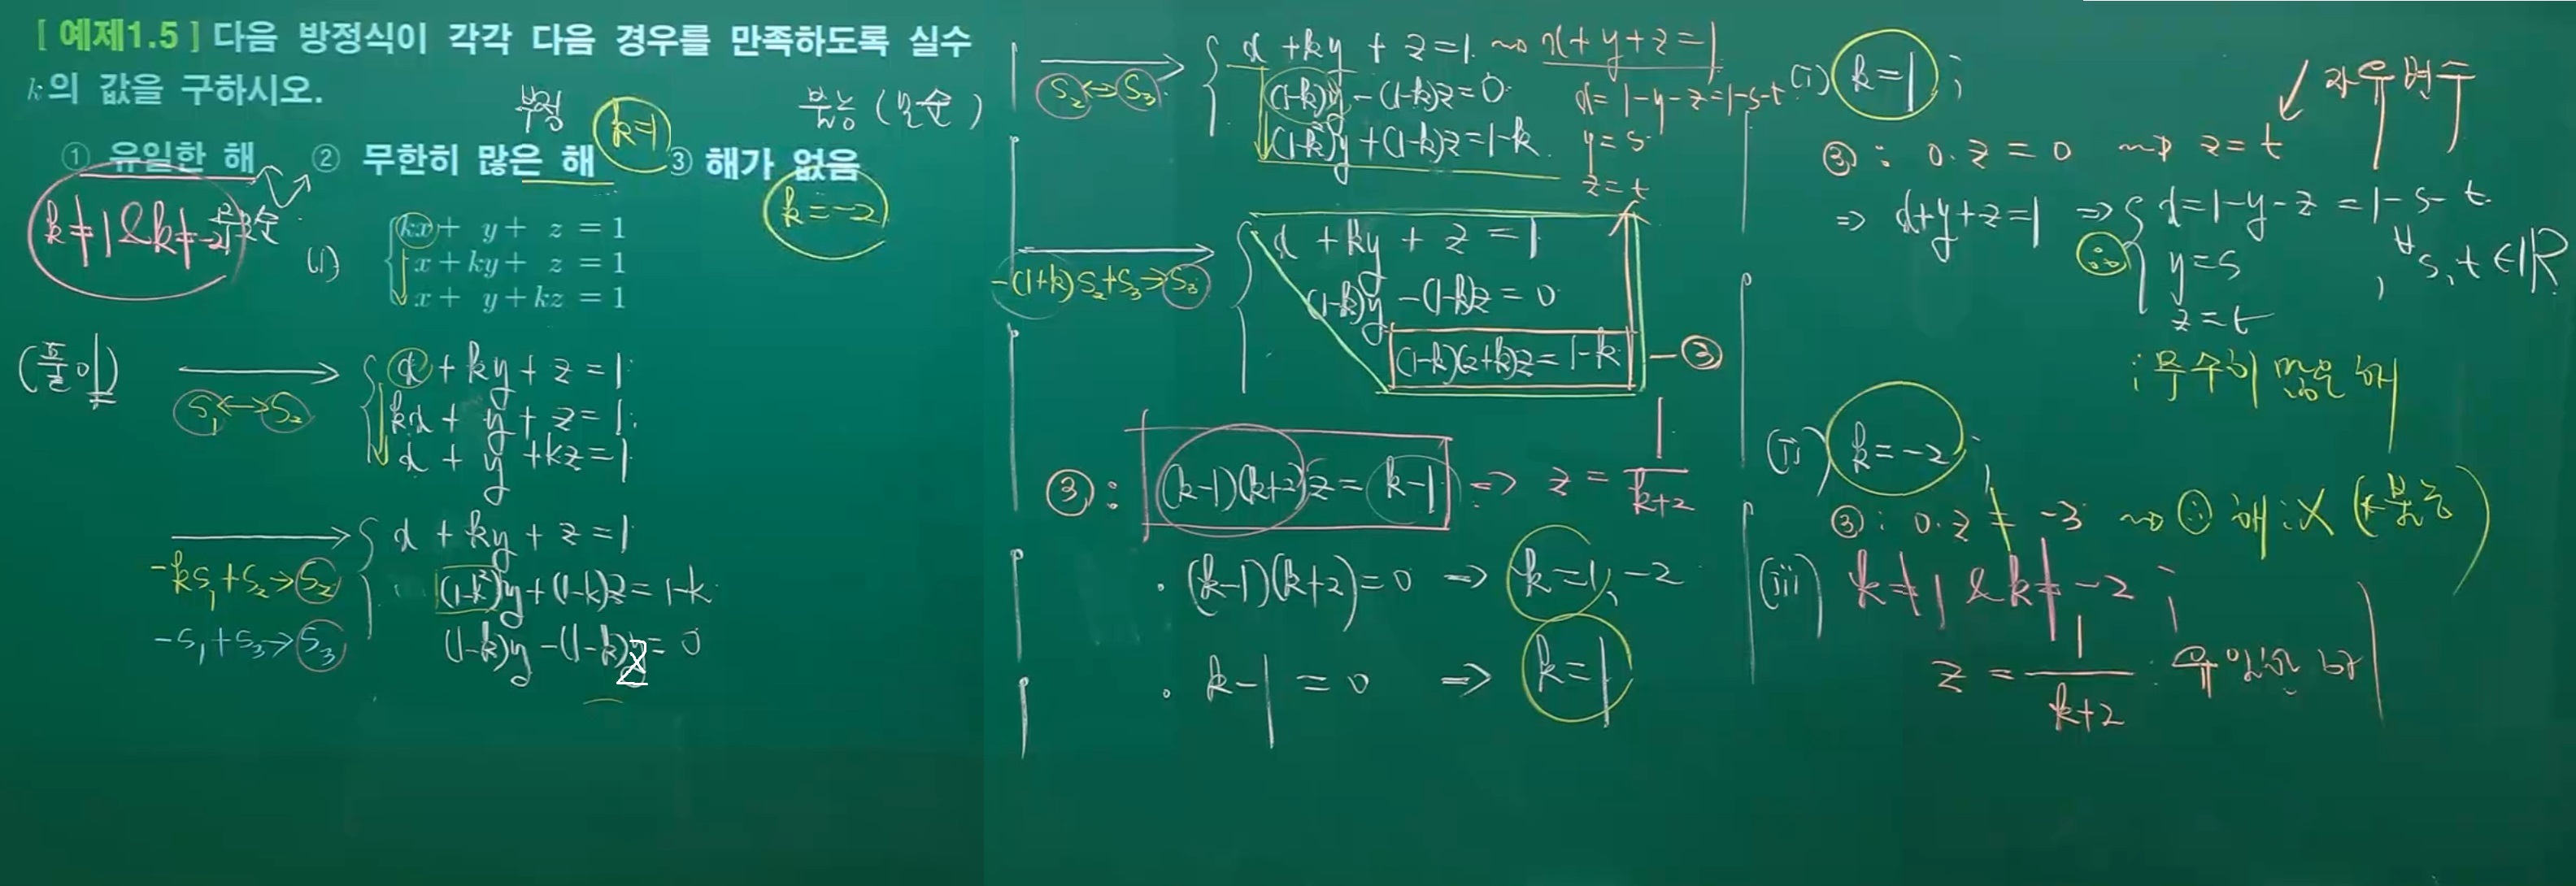 [ 예제1.5 ] 다음 방정식이 각각 다음 경우를 만족하도록 실수
k의 값을 구하시오.
부정 k=1 불능 (모순)
① 유일한 해 ② 무한히 많은 해 ③ 해가 없음
k≠1 & k≠-2 무모순
k=-2
(1) kx + y + z = 1
x + ky + z = 1
x + y + kz = 1
(풀이)
S₁↔S₂
x + ky + z = 1
kx + y + z = 1
x + y + kz = 1
-kS₁+S₂→S₂
-S₁+S₃→S₃
x + ky + z = 1
(1-k²)y + (1-k)z = 1-k
(1-k)y - (1-k)z = 0
S₂↔S₃
x + ky + z = 1 ⇝ x + y + z = 1
(1-k)y - (1-k)z = 0
(1-k²)y + (1-k)z = 1-k
x = 1-y-z = 1-s-t
y = s
z = t
-(1+k)S₂+S₃→S₃
x + ky + z = 1
(1-k)y - (1-k)z = 0
(1-k)(2+k)z = 1-k — ③
③ : (k-1)(k+2)z = k-1 ⇒ z = 1/(k+2)
· (k-1)(k+2) = 0 ⇒ k=1, -2
· k-1 = 0 ⇒ k=1
(i) k=1 ;
자유변수
③ : 0·z = 0 ⇝ z = t
⇒ x+y+z=1 ⇒ x = 1-y-z = 1-s-t
∴ y = s , ∀s, t ∈ ℝ
z = t
: 무수히 많은 해
(ii) k=-2 ;
③ : 0·z = -3 ⇝ ∴ 해 : X (불능)
(iii) k≠1 & k≠-2 ;
z = 1/(k+2) : 유일한 해